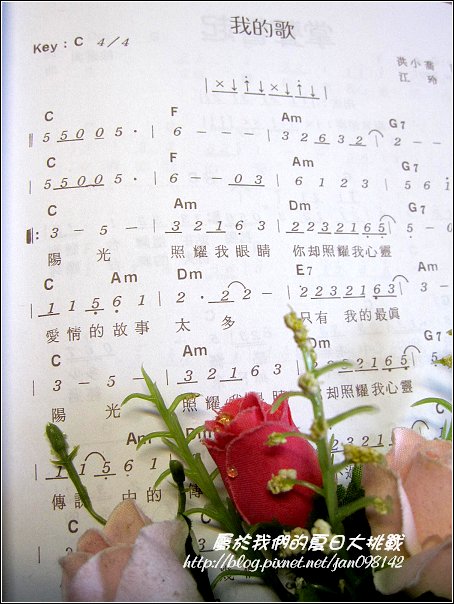 我的歌
Key : C 4／4
洪小喬
江 玲
| × ↓ ↑ ↓ × ↓ ↑ ↓ |
C F Am G7
5 5 0 0 5 · | 6 － － － | 3 2 6 3 2 | 2 － －
C F Am G7
5 5 0 0 5 · | 6 － － 0 3 | 6 1 2 3 | 5 6 1
C Am Dm G7
3 － 5 － | 3 2 1 6 3 | 2 2 3 2 1 6 5 | 5 － 0
陽 光 照耀我眼睛 你却照耀我心靈
C Am Dm E7 Am
1 1 5 6 1 | 2 · 2 2 － | 2 2 3 2 1 6 1 | 3 －
愛情的故事 太 多 只有 我的最眞
C Am G7
3 － 5 － | 3 2 1 6 3 2 2 1 6 5 | 5
陽 光 照耀我 睛 却照耀我心靈
C Am Dm
1 1 5 6 1 2 2 3 2 1
傳 中的傳
屬於我們的夏日大挑戰
http://blog.pixnet.net/jan098142